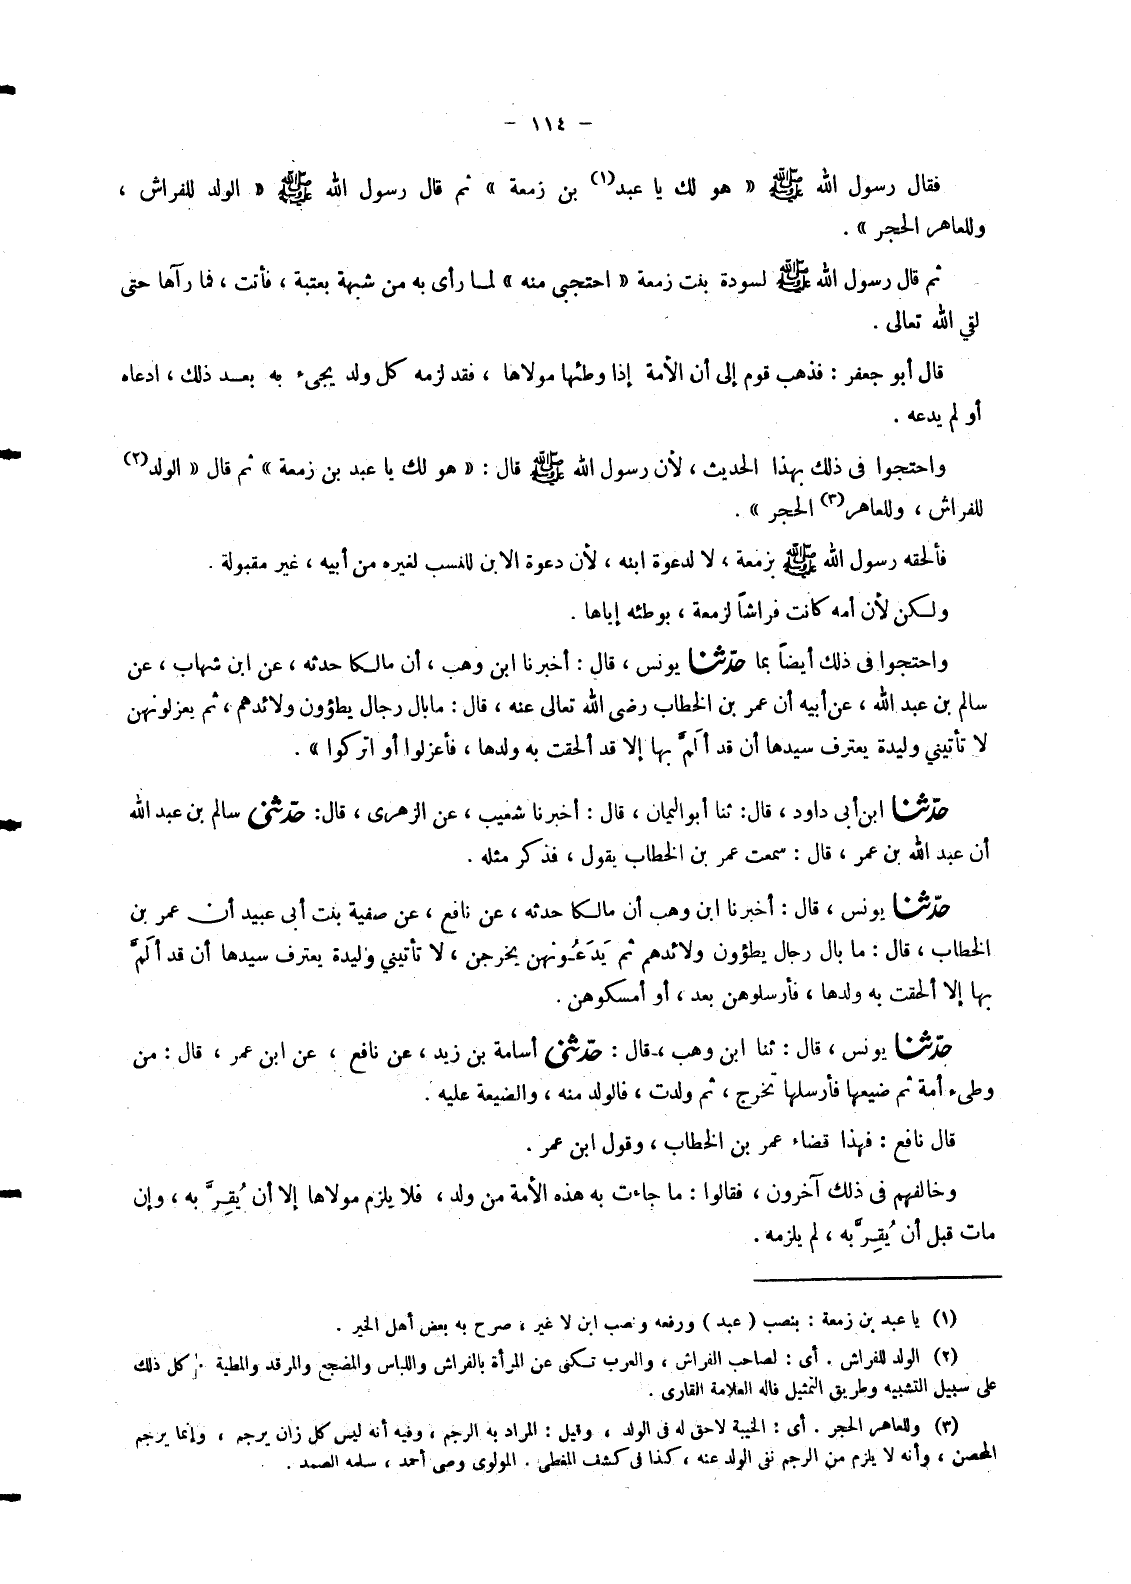 - ١١٤ -
فقال رسول الله ﷺ « هو لك يا عبد(١) بن زمعة » ثم قال رسول الله ﷺ « الولد للفراش ،
وللعاهر الحجر » .
ثم قال رسول الله ﷺ لسودة بنت زمعة « احتجبى منه » لما رأى به من شبهة بعتبة ، فأتت ، فما رآها حتى
لقي الله تعالى .
قال أبو جعفر : فذهب قوم إلى أن الأمة إذا وطئها مولاها ، فقد لزمه كل ولد يجىء به بعد ذلك ، ادعاه
أو لم يدعه .
واحتجوا فى ذلك بهذا الحديث ، لأن رسول الله ﷺ قال : « هو لك يا عبد بن زمعة » ثم قال « الولد(٢)
للفراش ، وللعاهر(٣) الحجر » .
فألحقه رسول الله ﷺ بزمعة ، لا لدعوة ابنه ، لأن دعوة الابن للنسب لغيره من أبيه ، غير مقبولة .
ولكن لأن أمه كانت فراشاً لزمعة ، بوطئه إياها .
واحتجوا فى ذلك أيضاً بما حدّثنا يونس ، قال : أخبرنا ابن وهب ، أن مالكا حدثه ، عن ابن شهاب ، عن
سالم بن عبد الله ، عن أبيه أن عمر بن الخطاب رضى الله تعالى عنه ، قال : مابال رجال يطؤون ولائدهم ، ثم يعزلونهن
لا تأتيني وليدة يعترف سيدها أن قد ألَمَّ بها إلا قد ألحقت به ولدها ، فأعزلوا أو اتركوا » .
حدّثنا ابن أبى داود ، قال : ثنا أبو اليمان ، قال : أخبرنا شعيب ، عن الزهرى ، قال : حدّثنى سالم بن عبد الله
أن عبد الله بن عمر ، قال : سمعت عمر بن الخطاب يقول ، فذكر مثله .
حدّثنا يونس ، قال : أخبرنا ابن وهب أن مالكا حدثه ، عن نافع ، عن صفية بنت أبى عبيد أن عمر بن
الخطاب ، قال : ما بال رجال يطؤون ولائدهم ثم يَدَعُونهن يخرجن ، لا تأتيني وليدة يعترف سيدها أن قد ألَمَّ
بها إلا ألحقت به ولدها ، فأرسلوهن بعد ، أو أمسكوهن .
حدّثنا يونس ، قال : ثنا ابن وهب ، قال : حدّثنى أسامة بن زيد ، عن نافع ، عن ابن عمر ، قال : من
وطىء أمة ثم ضيعها فأرسلها تخرج ، ثم ولدت ، فالولد منه ، والضيعة عليه .
قال نافع : فهذا قضاء عمر بن الخطاب ، وقول ابن عمر .
وخالفهم فى ذلك آخرون ، فقالوا : ما جاءت به هذه الأمة من ولد ، فلا يلزم مولاها إلا أن يُقِرَّ به ، وإن
مات قبل أن يُقِرَّ به ، لم يلزمه .
(١) يا عبد بن زمعة : بنصب ( عبد ) ورفعه ونصب ابن لا غير ، صرح به بعض أهل الخبر .
(٢) الولد للفراش . أى : لصاحب الفراش ، والعرب تكنى عن المرأة بالفراش واللباس والمضجع والمرقد والمطية . كل ذلك
على سبيل التشبيه وطريق التمثيل قاله العلامة القارى .
(٣) وللعاهر الحجر . أى : الخيبة لاحق له فى الولد ، وقيل : المراد به الرجم ، وفيه أنه ليس كل زان يرجم ، وإنما يرجم
المحصن ، وأنه لا يلزم من الرجم نفى الولد عنه ، كذا فى كشف المغطى . المولوى وصى أحمد ، سلمه الصمد .